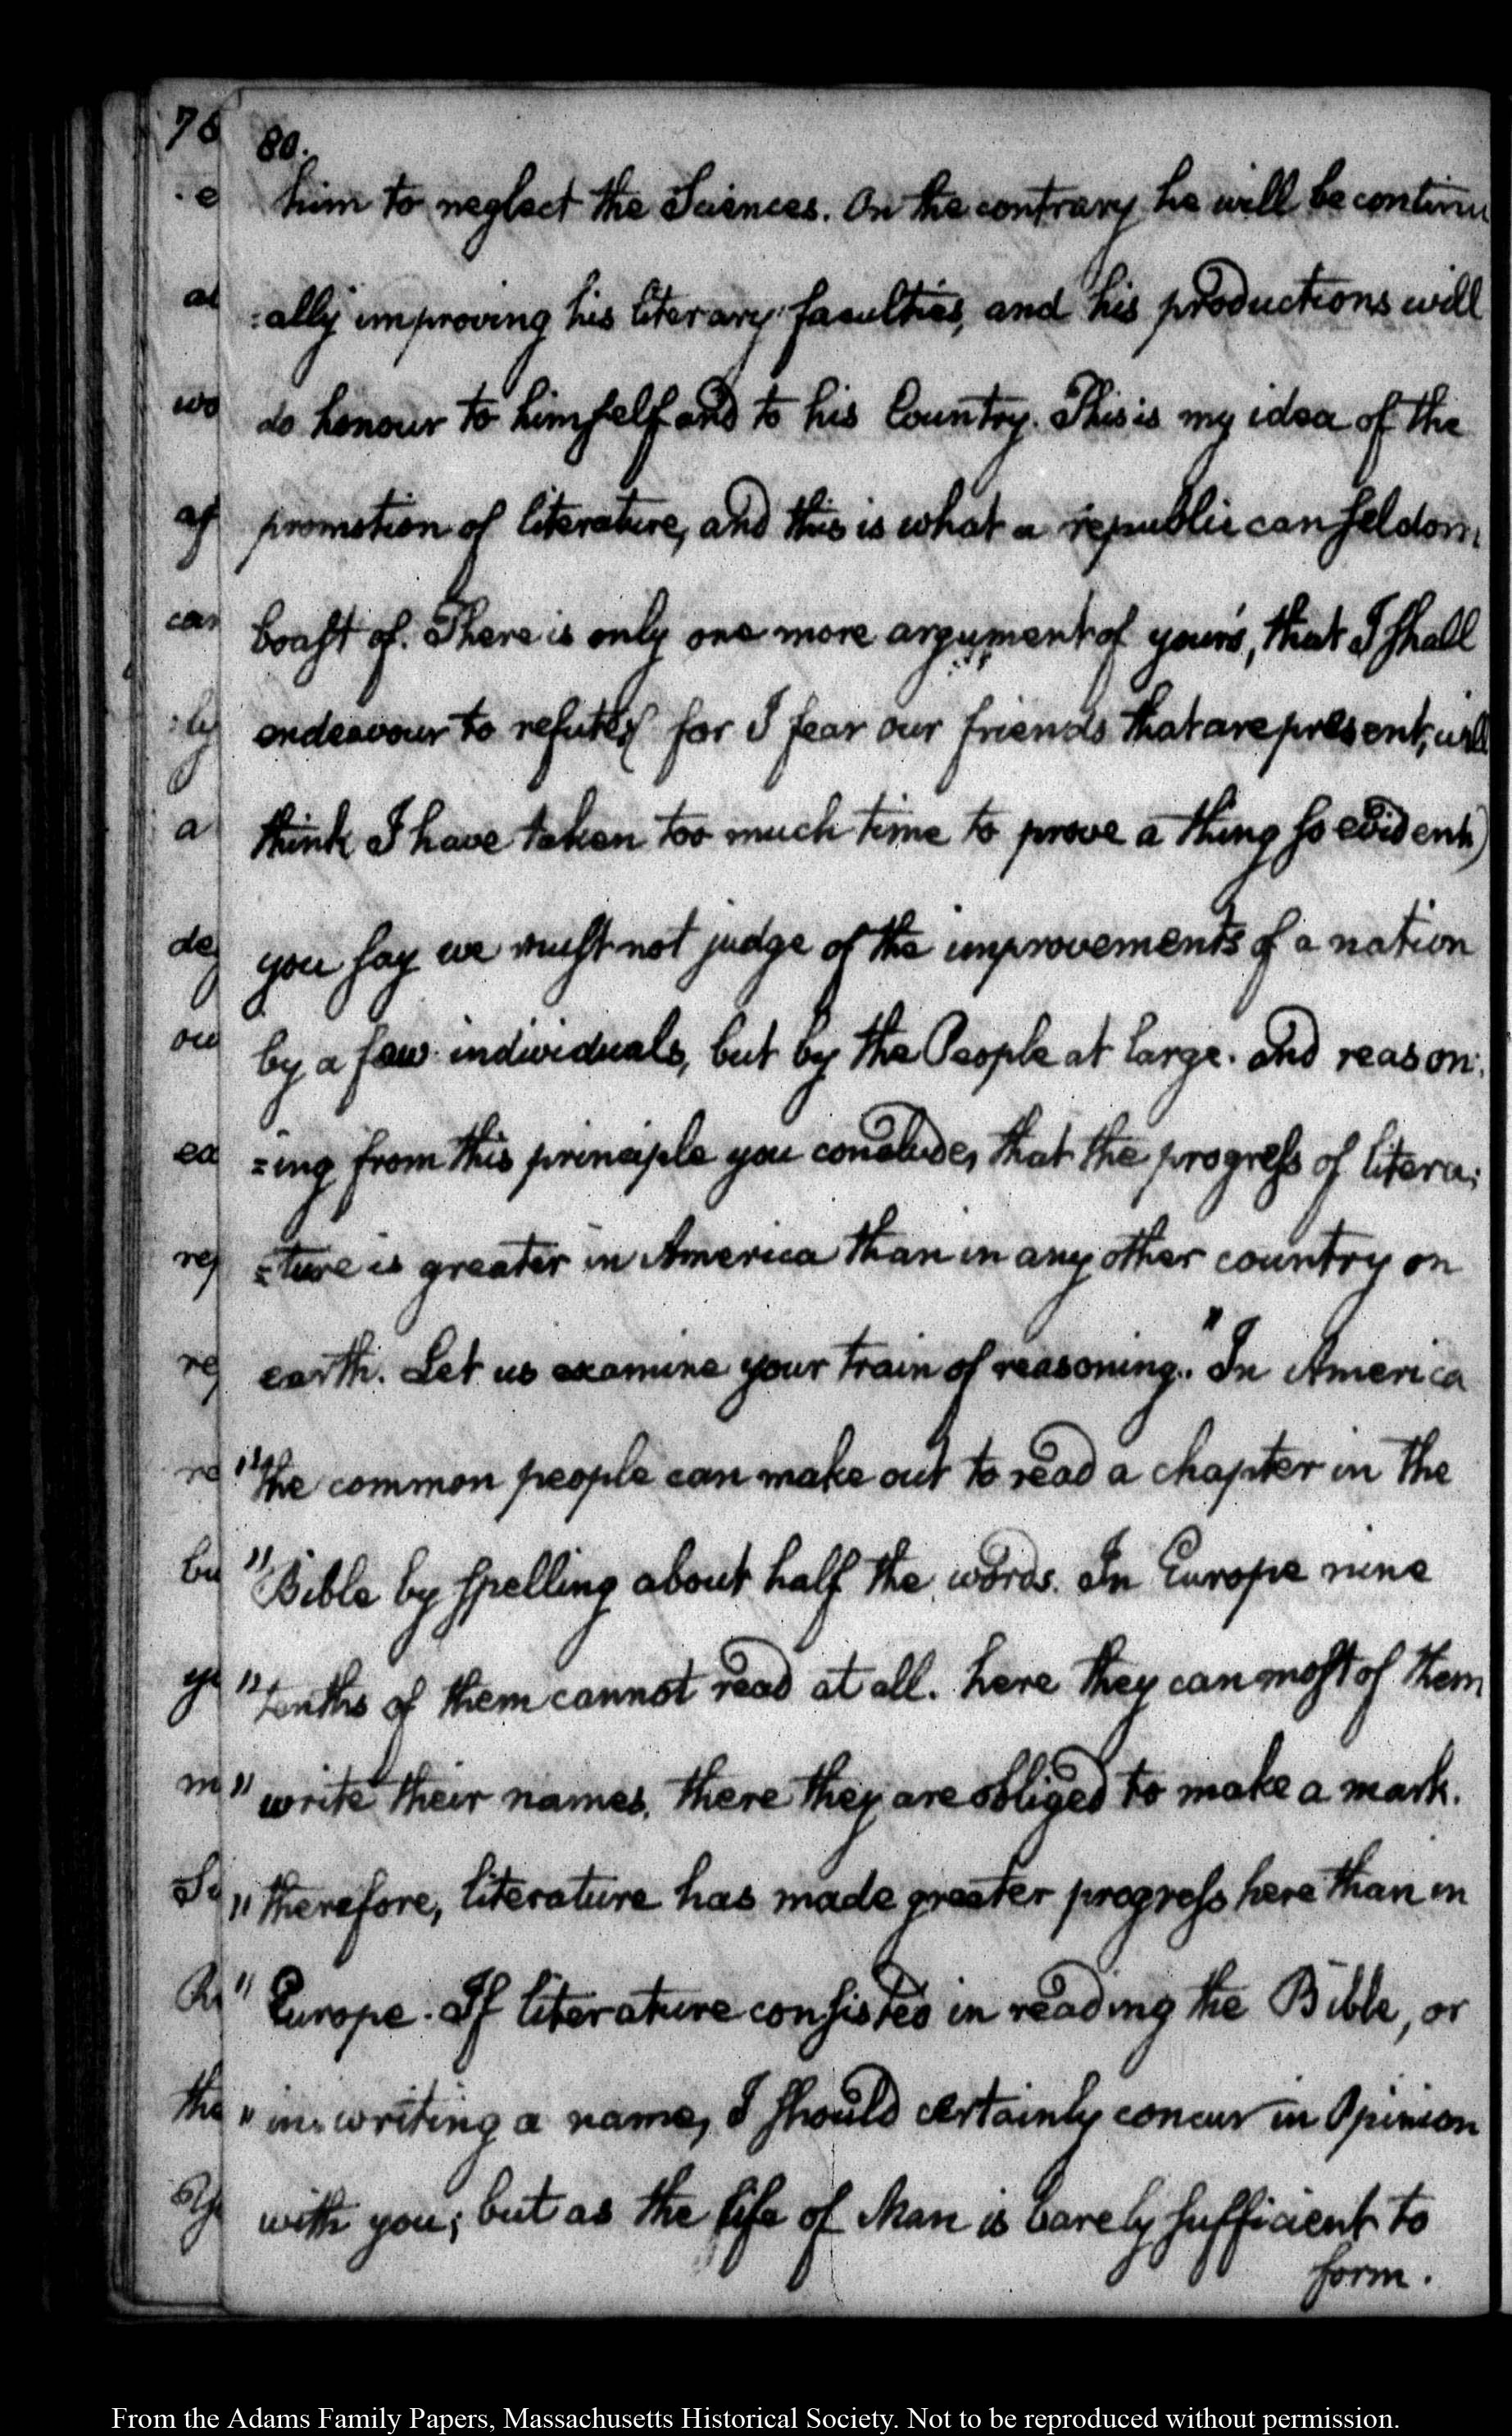 76
80.
him to neglect the Sciences. On the contrary he will be continu
:ally improving his literary faculties, and his productions will
do honour to himself and to his Country. This is my idea of the
promotion of literature, and this is what a republic can seldom
boast of. There is only one more argument of your's, that I shall
endeavour to refute; (for I fear our friends that are present, will
think I have taken too much time to prove a thing so evident)
you say we must not judge of the improvements of a nation
by a few individuals, but by the People at large. and reason:
=ing from this principle you conclude, that the progress of litera:
=ture is greater in America than in any other country on
earth. Let us examine your train of reasoning. "In America
"the common people can make out to read a chapter in the
"Bible by spelling about half the words. In Europe nine
"tenths of them cannot read at all. here they can most of them
"write their names, there they are obliged to make a mark.
"therefore, literature has made greater progress here than in
"Europe. If literature consisted in reading the Bible, or
"in writing a name, I should certainly concur in Opinion
with you; but as the life of Man is barely sufficient to
form.
From the Adams Family Papers, Massachusetts Historical Society. Not to be reproduced without permission.